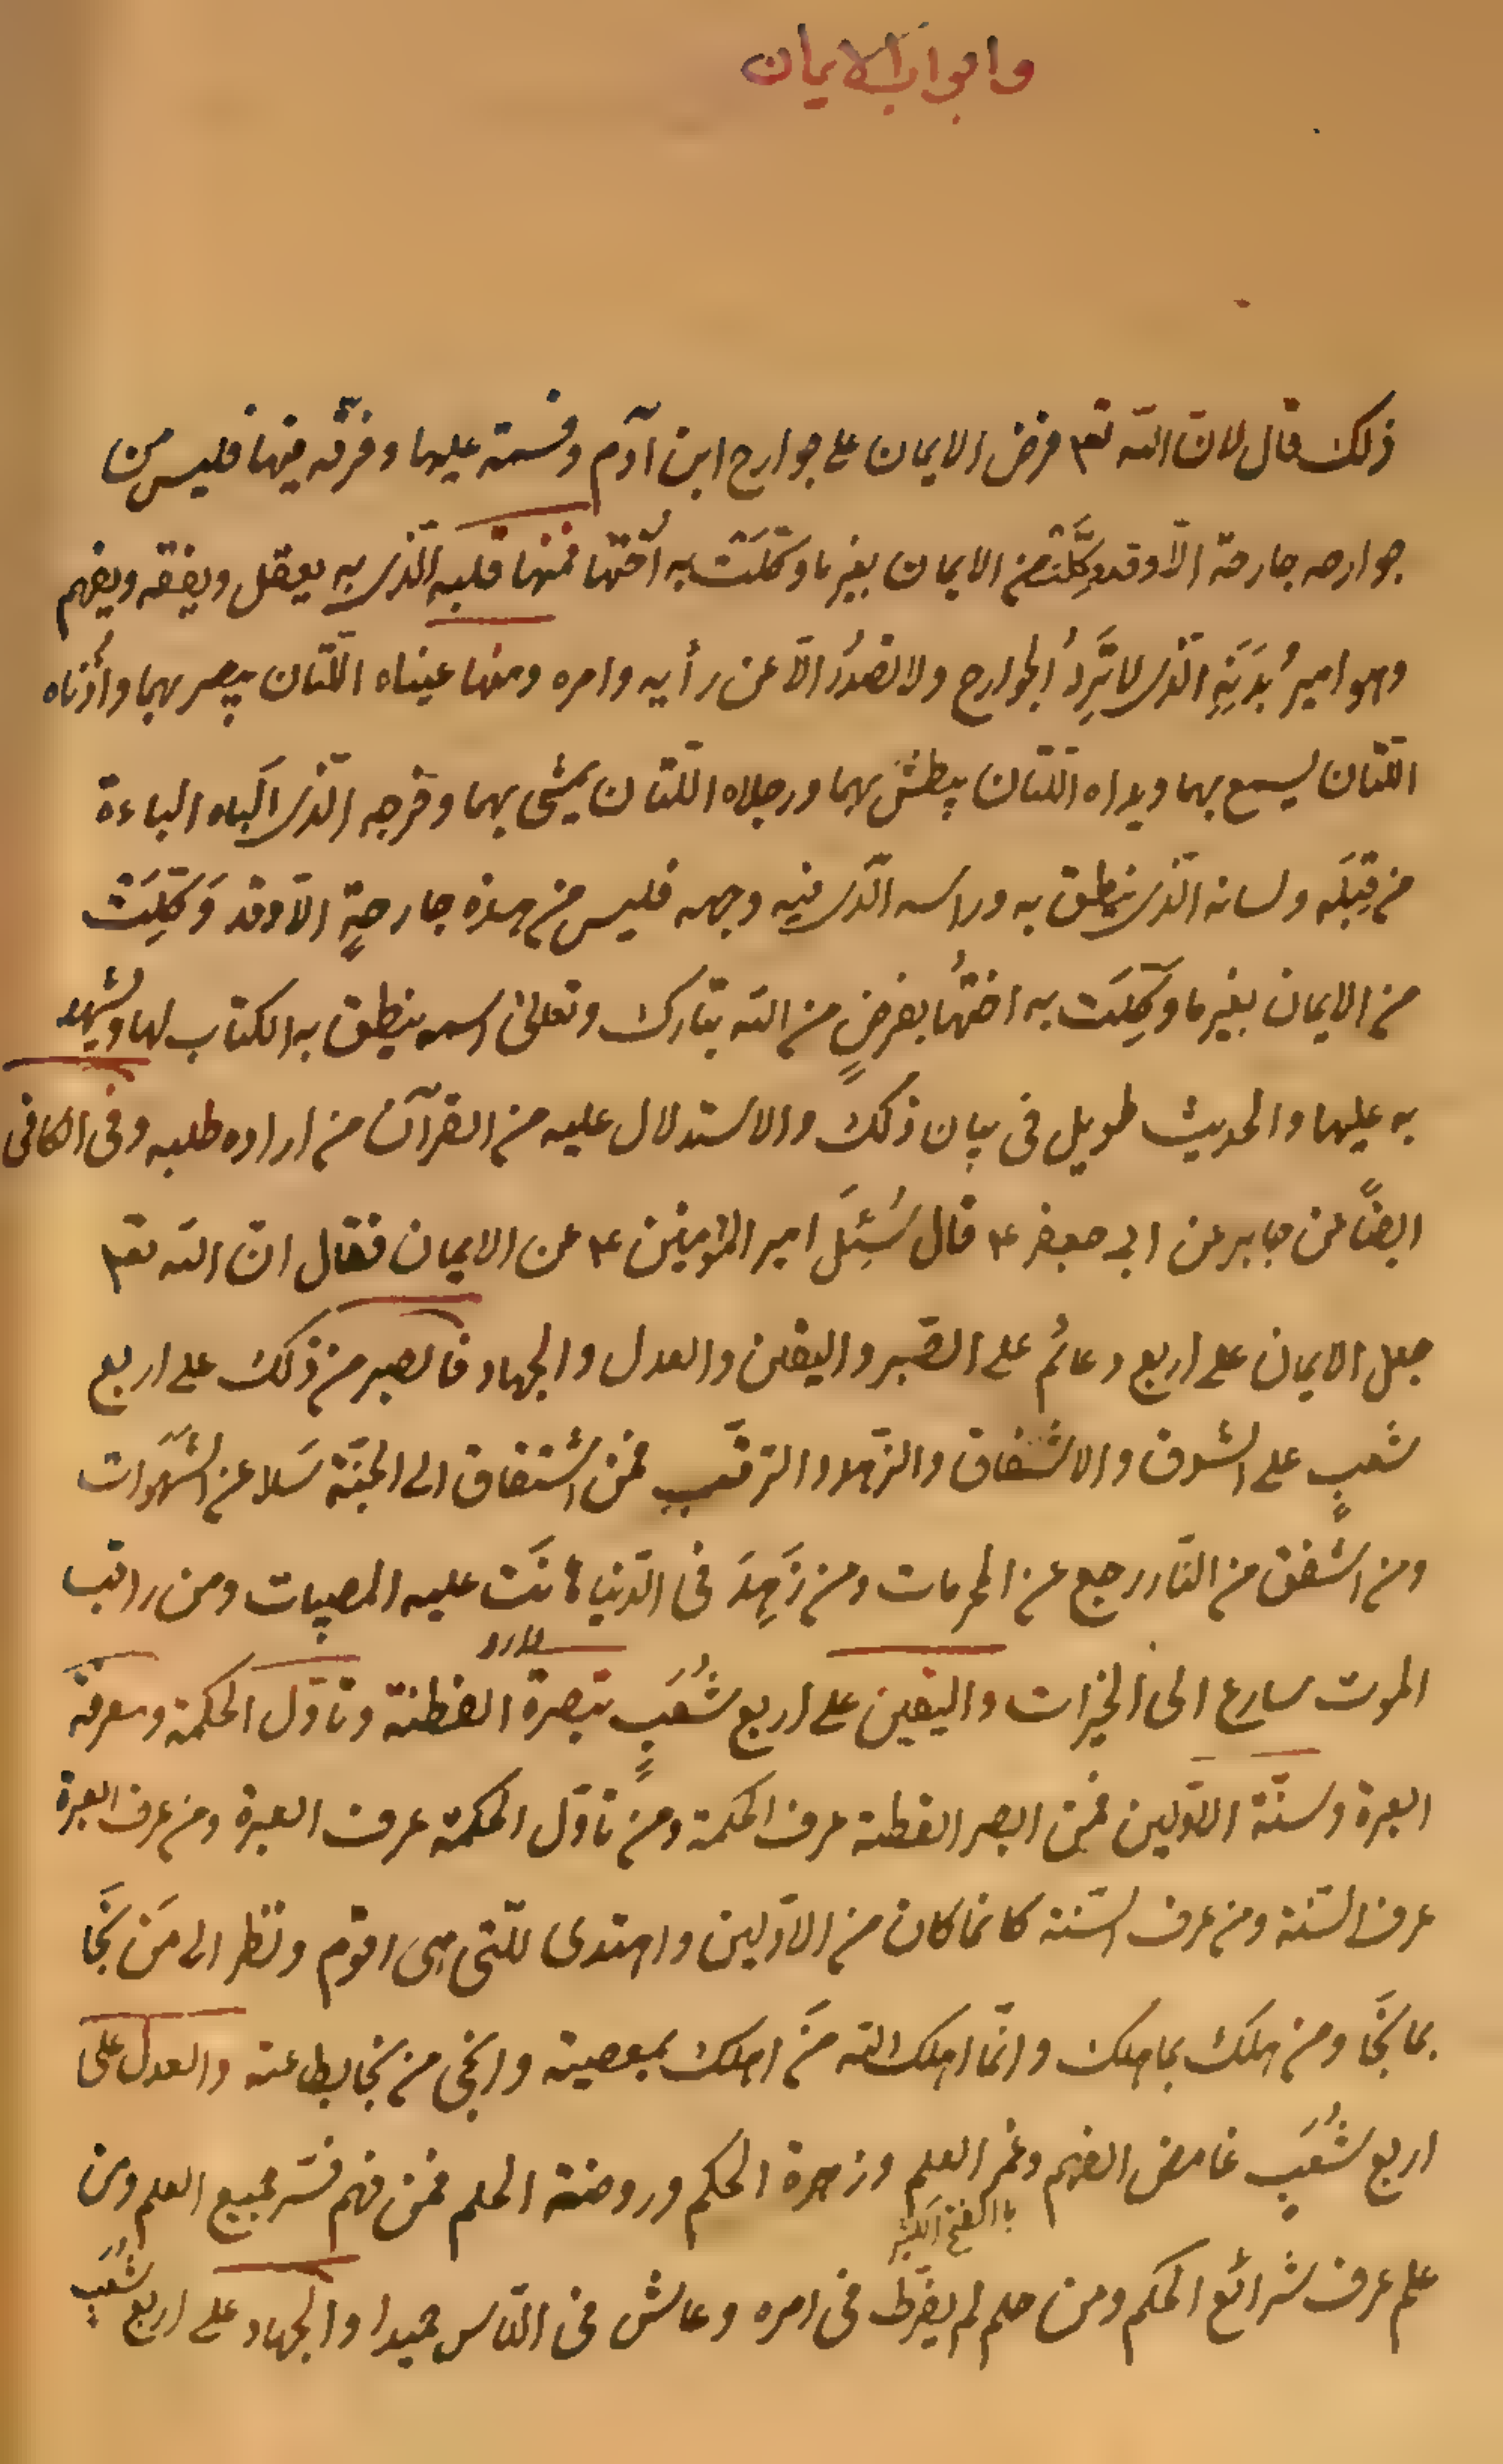 وابواب الايمان
ذلك قال لانّ الله تع٣ فرض الايمان على جوارح ابن آدم وقسمه عليها وفرّقه فيها فليس من
جوارحه جارحة الّا وقد وكّلت من الايمان بغير ما وكّلت به اُختها فمنها قلبه الّذى به يعقل ويفقه ويفهم
وهو اميرُ بَدَنِهِ الّذى لا تَرِدُ الجوارح ولا تصدُرُ الّا عن رأيه وامره ومنها عيناه اللّتان يبصر بهما واُذناه
اللّتان يسمع بهما ويداه اللّتان يبطش بهما ورجلاه اللّتان يمشى بهما وفرجه الّذى الباه الباءة
من قِبَلَه ولسانه الّذى ينطق به وراسه الّذى فيه وجهه فليس من هذه جارحةٍ الّا وقد وَكّلَتْ
من الايمان بغير ما وُكِّلَت به اختُها بفرضٍ من الله تبارك وتعالى اسمه ينطق به الكتاب لها ويشهد
به عليها والحديث طويل فى بيان ذلك والاستدلال عليه من القرآن من اراده طلبه وفى الكافى
ايضًا عن جابر عن ابى جعفر ع قال سُئِلَ امير المؤمنين ع عن الايمان فقال انّ الله تع٣
جعل الايمان على اربع دعائم على الصّبر واليقين والعدل والجهاد فالصبر من ذلك على اربع
شعبٍ على الشوق والاشفاق والزّهد والترقّب فمن اشتفاق الى الجنّة سَلا عن الشّهوات
ومن اشفق من النّار رجع عن المحرمات ومن زَهِدَ فى الدّنيا هانَت عليه المصيبات ومن راقب
الموت سارع الى الخيرات واليقين على اربع شُعَبٍ تبصرة الفطنة وتاوّل الحكمة ومعرفة
العبرة وسنّة الاوّلين فمن ابصر الفطنة عرف الحكمة ومن تاوّل الحكمة عرف العبرة ومن عرف العبرة
عرف السّنة ومن عرف السّنة كانما كان من الاوّلين واهتدى للّتى هى اقوم ونظر الى مَن نَجَا
بما نَجَا ومن هلك بما هلك وانّما اهلك الله مَن اهلك بمعصيته وانجى من نجا بطاعته والعدل على
اربع شُعَبٍ غامض الفهم وغمر العلم وزهرة الحكم وروضة الحلم فمن فهم فسّر جميع العلم ومن
علم عرف شرائع الحكم ومن حلم لم يفرّط فى امره وعاش فى النّاس حميدا والجهاد على اربع شُعَبٍ